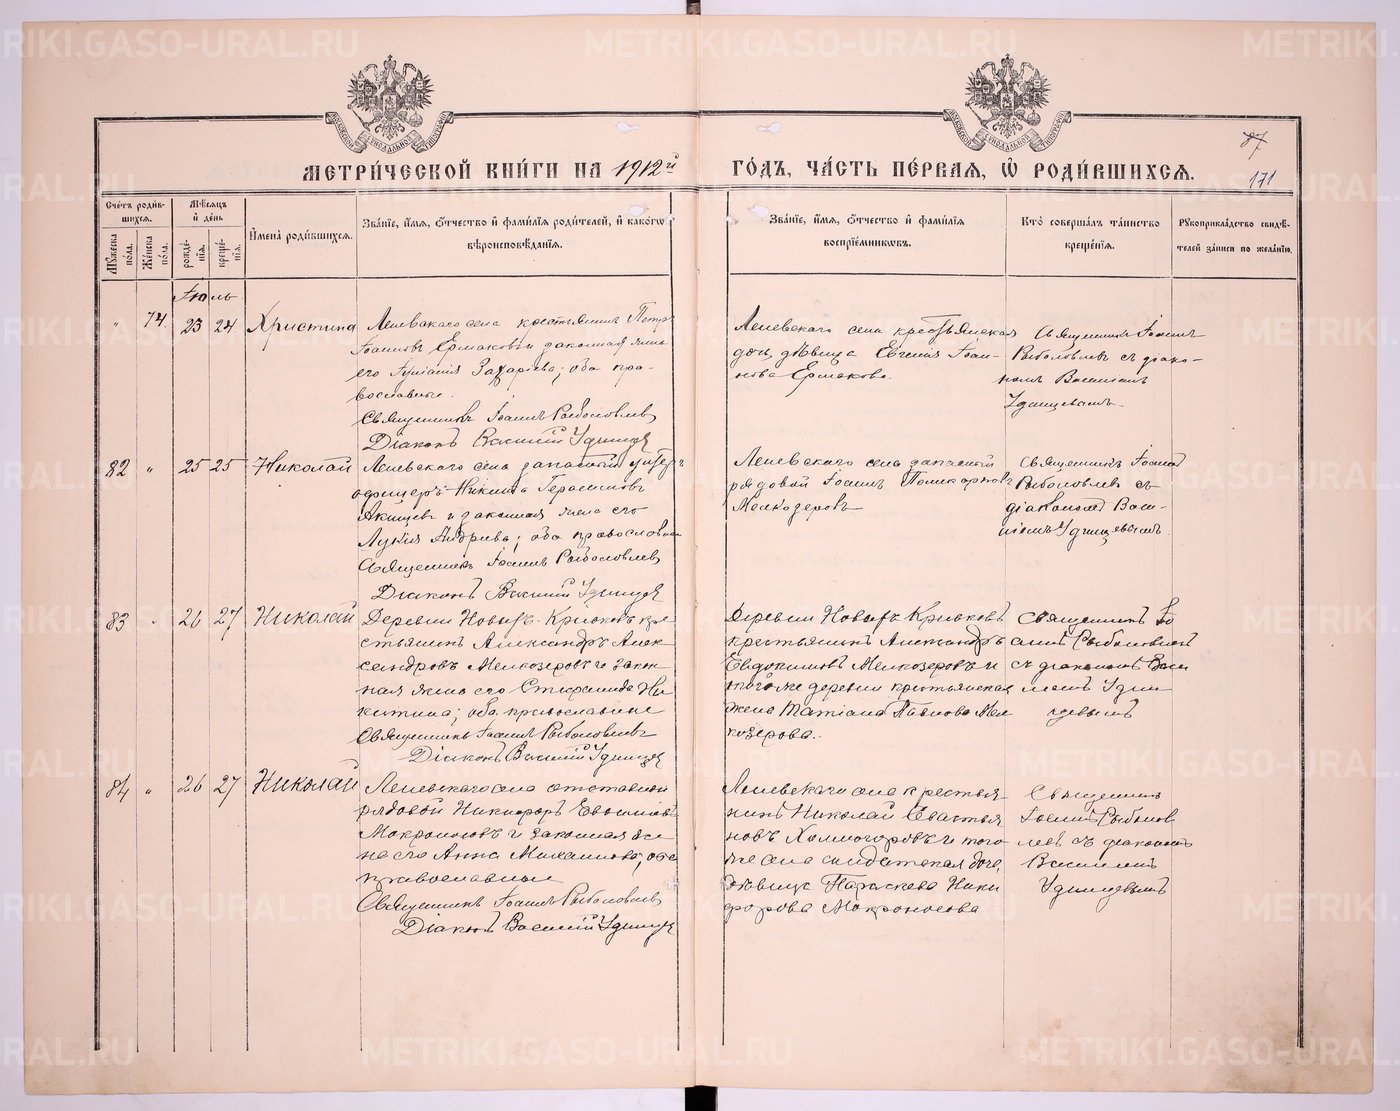 87
171
МЕТРИЧЕСКОЙ КНИГИ НА 1912й ГОДЪ, ЧАСТЬ ПЕРВАЯ, Ѿ РОДИВШИХСЯ.
Счетъ родившихся.
Мужеска пола.
Женска пола.
Мѣсяцъ и день
рожденія.
крещенія.
Имена родившихся.
Званіе, имя, отчество и фамилія родителей, и какогѡ вѣроисповѣданія.
Званіе, имя, отчество и фамилія воспріемниковъ.
Кто совершалъ таинство крещенія.
Рукоприкладство свидѣтелей записи по желанію.
Іюль
" 74. 23 24 Христина
села крестьянинъ Петръ
Іоанновъ Ермаковъ и законная жена
его Захаріева; оба пра-
вославные.
Священникъ Іоаннъ Рыболовлев
Діаконъ Василій Удинцев
села крестьянская
дочь, дѣвица Евгенія Іоан-
нова Ермакова.
Священникъ Іоаннъ
Рыболовлевъ съ діако-
номъ Василіемъ
Удинцевымъ.
82 " 25 25 Николай
села запасный унтеръ
офицеръ Никита Герасимовъ
и законная жена его
Лукія Андреева; оба православные
Священникъ Іоаннъ Рыболовлев
Діаконъ Василій Удинцев
села запасный
рядовой Іоаннъ Поликарповъ
Мелкозеровъ
Священникъ Іоаннъ
Рыболовлевъ съ
діакономъ Васи-
ліемъ Удинцевымъ.
83 " 26 27 Николай
Деревни Новыхъ Крюковъ кре-
стьянинъ Александръ Алек-
сандровъ Мелкозеровъ и закон-
ная жена его Стефанида Ни-
китина; оба православные
Священникъ Іоаннъ Рыболовлев
Діаконъ Василій Удинцев
Деревни Новыхъ Крюковъ
крестьянинъ Александръ
Евдокимовъ Мелкозеровъ и
тойже деревни крестьянская
жена Татіана Павлова Мел
козерова.
Священникъ Іо
аннъ Рыболовлевъ
съ діакономъ Васи
ліемъ Удин
цевымъ
84 " 26 27 Николай
села отставной
рядовой Никифоръ
Мокроносовъ и законная же
на его Анна оба
православные
Священникъ Іоаннъ Рыболовлев
Діаконъ Василій Удинцев
села крестья
нинъ Николай Севастья
новъ Холмогоровъ и того
же села солдатская дочь,
дѣвица Параскева Ники
форова Мокроносова
Священникъ
Іоаннъ Рыболов
левъ съ діакономъ
Василіемъ
Удинцевымъ
METRIKI.GASO-URAL.RU